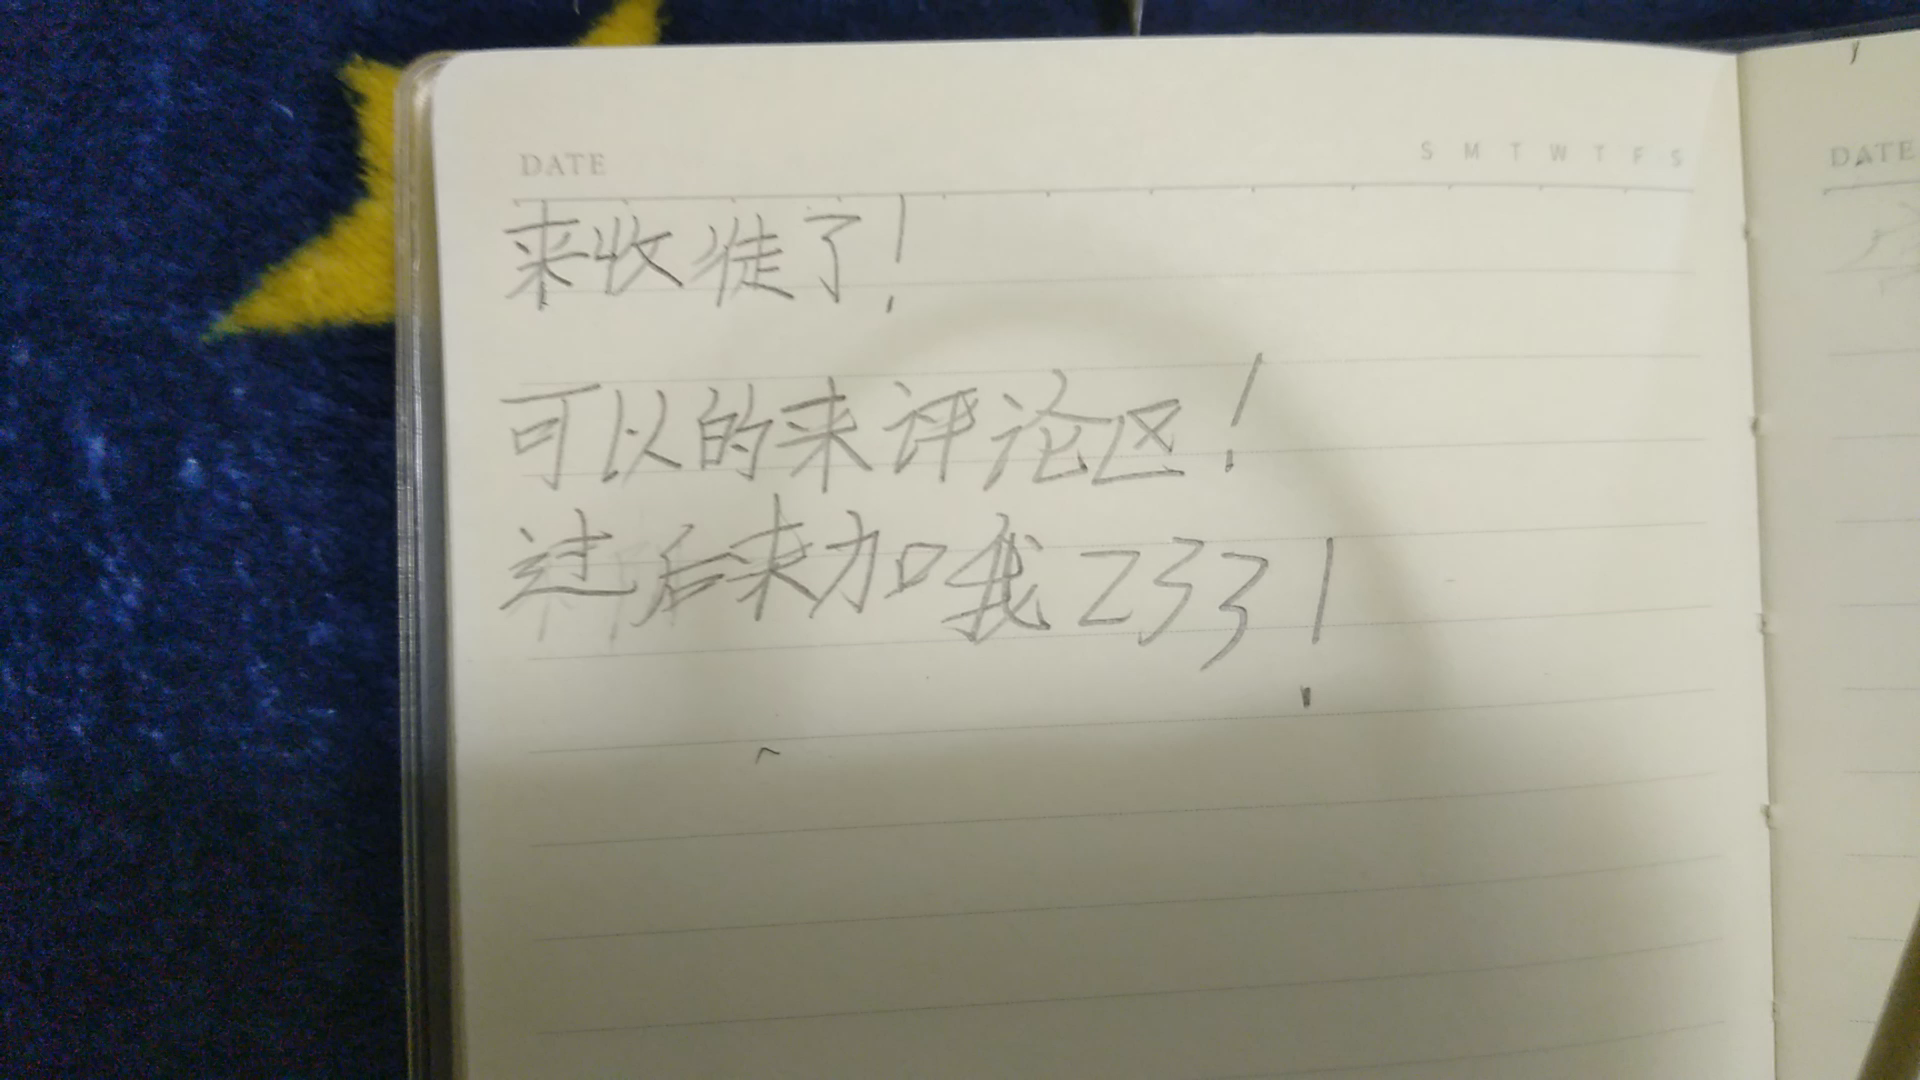 DATE
S M T W T F S
来收徒了!
可以的来评论区!
过后来加我233!
DATE